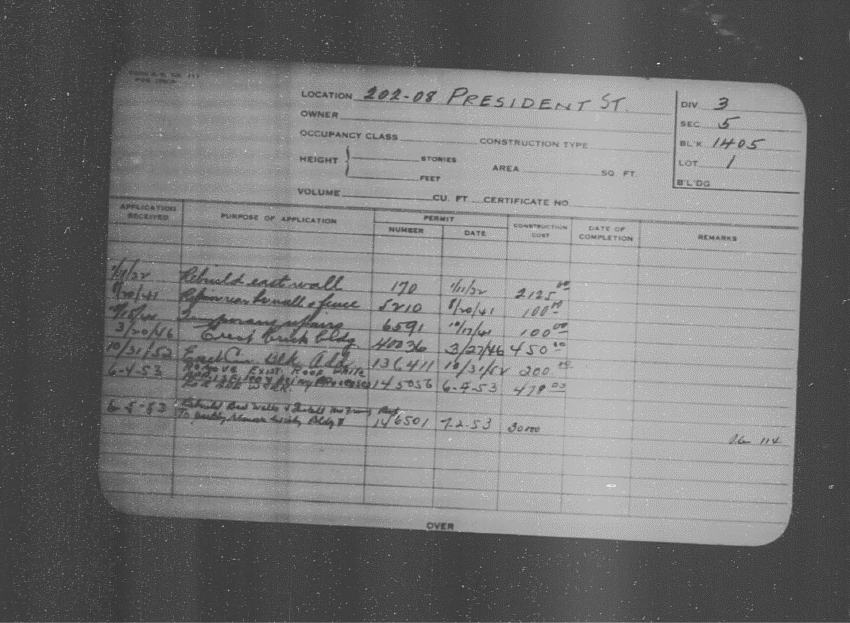 LOCATION 202-08 PRESIDENT ST.
OWNER
OCCUPANCY CLASS CONSTRUCTION TYPE
HEIGHT STORIES
FEET
AREA SQ. FT.
VOLUME CU. FT. CERTIFICATE NO.
DIV. 3
SEC. 5
BL'K. 1405
LOT. 1
B'L'DG
APPLICATION RECEIVED PURPOSE OF APPLICATION PERMIT NUMBER DATE CONSTRUCTION COST DATE OF COMPLETION REMARKS
Rebuild east wall 170 1/11/22 2125 00
8/20/41 Repair rear wall & fence 5210 8/20/41 100 00
Temporary repairs 6591 10/17/41 100 00
3/20/46 Erect brick bldg 40036 3/27/46 450 00
10/31/52 Erect Cin Blk Add 136411 10/31/52 200 00
6-4-53 REMOVE EXIST ROOF 145056 6-9-53 479 00
6-5-53 Rebuild Walls & Install 146501 7-2-53 30000
114
OVER